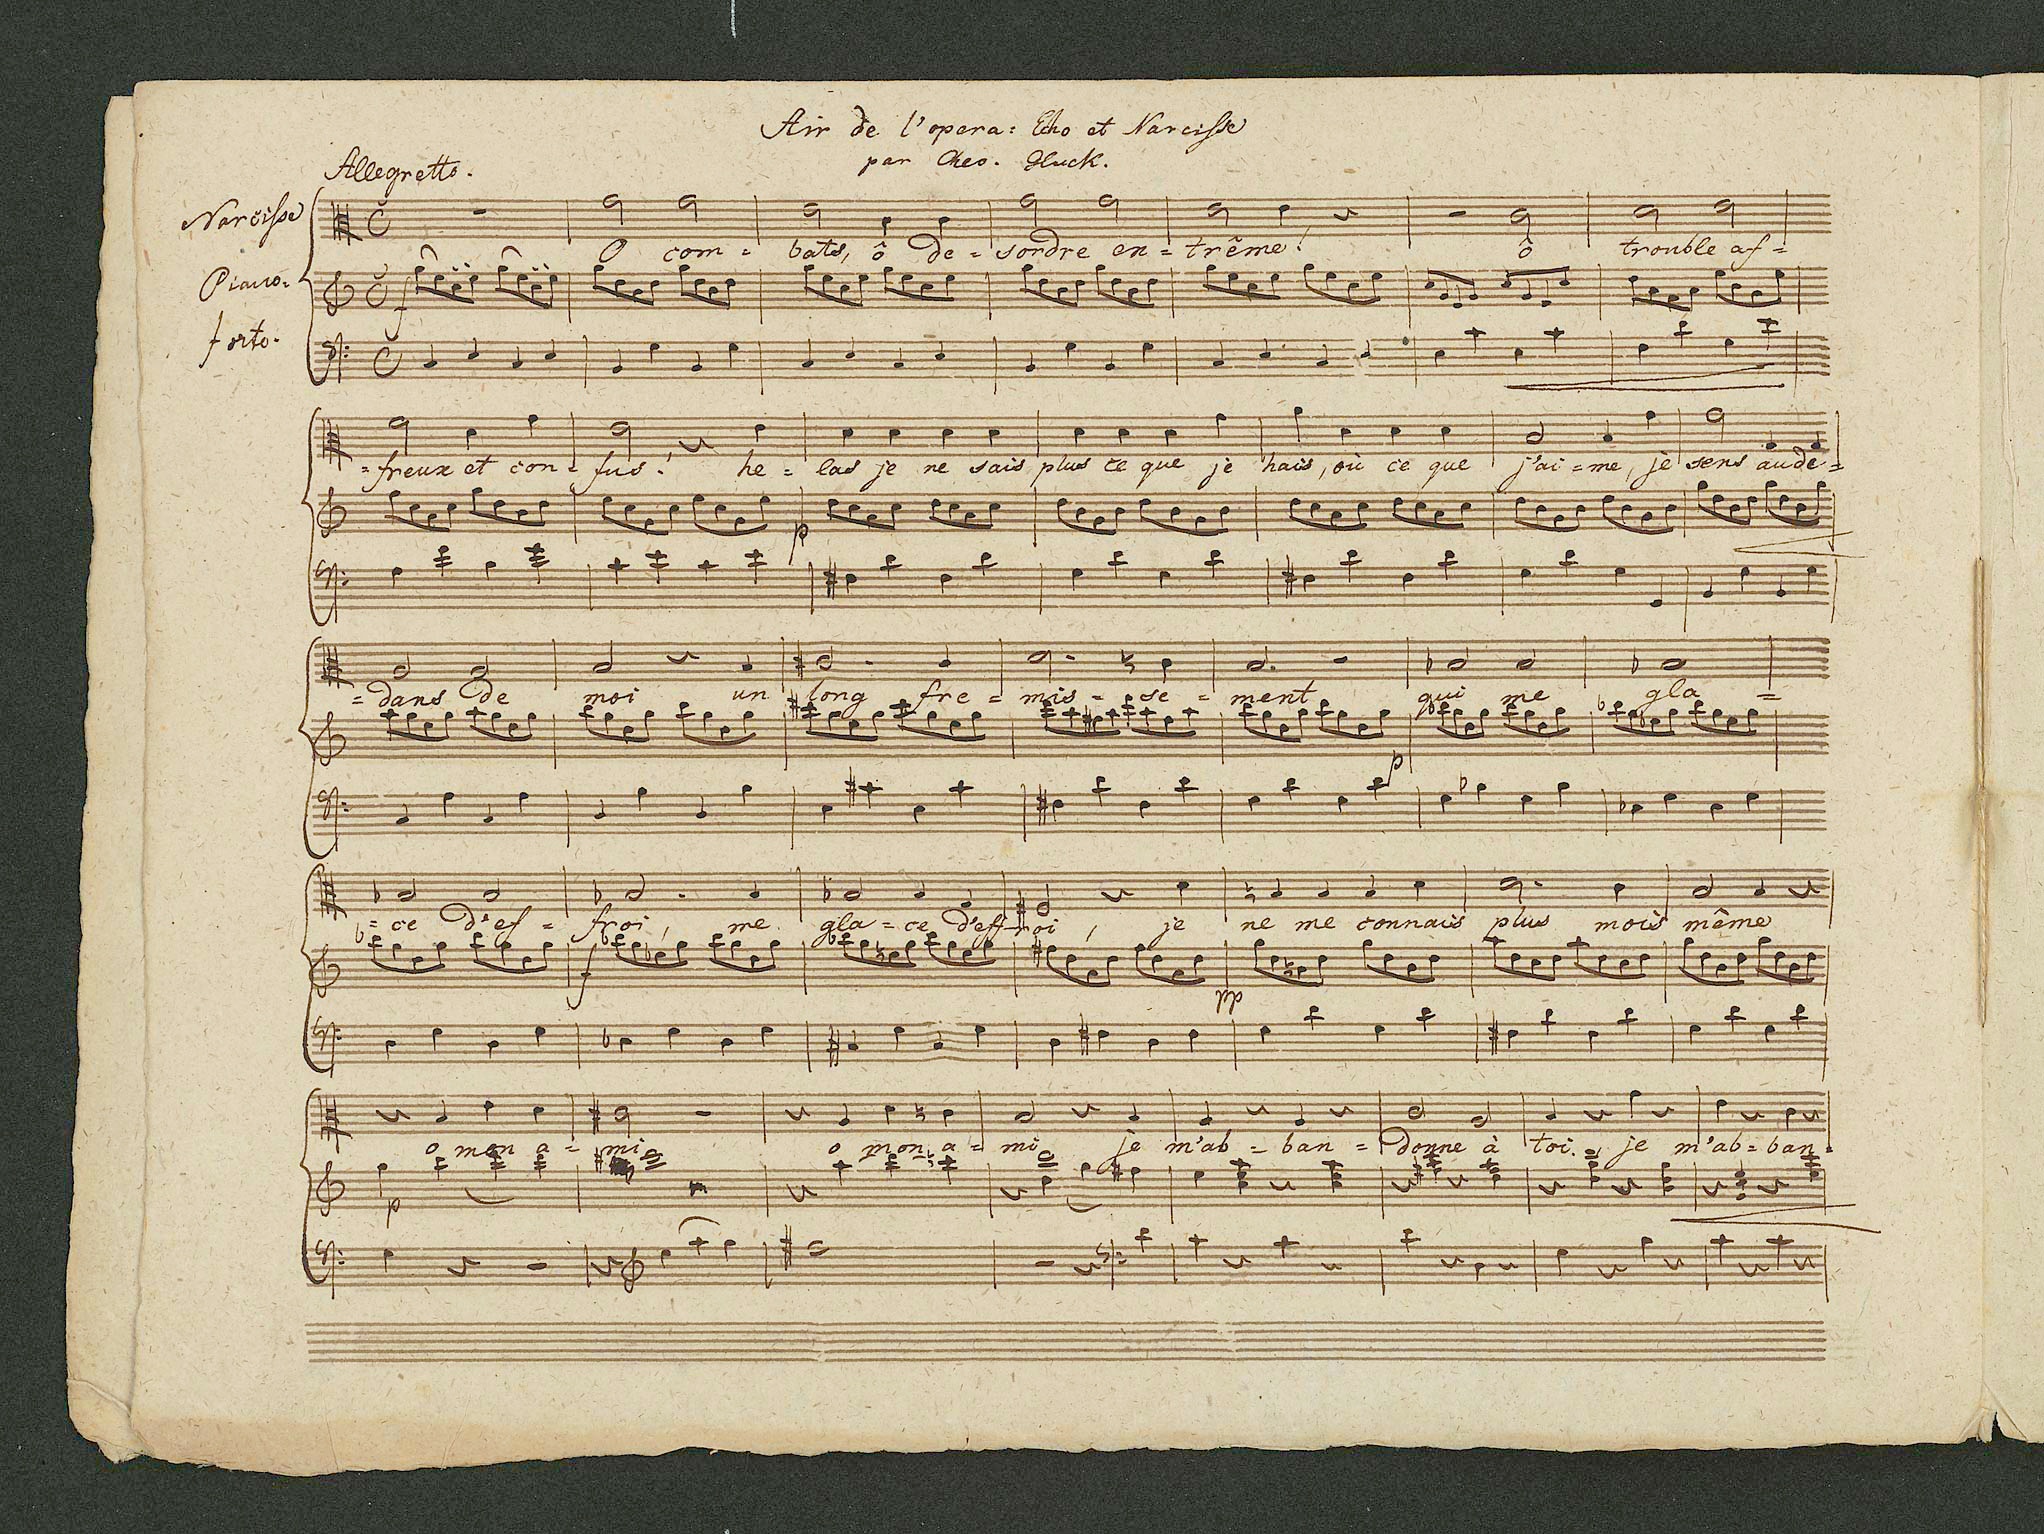 Air de l'opera: Echo et Narcisse
par Chev. Gluck.
Allegretto.
Narcisse
O com - bats, ô de - sordre en - trême! ô trouble af =
Piano =
f
forto.
= freux et con - fus! he - las je ne sais plus ce que je hais, où ce que j'ai = me, je sens aude =
p
= dans de moi un long fre - mis - se - ment qui me gla =
p
= ce d'ef - froi, me gla = ce d'eff - roi, je ne me connais plus mois même
f pp
o mon a = mi o mon a = mi je m'ab - ban - donne à toi. je m'ab = ban =
p